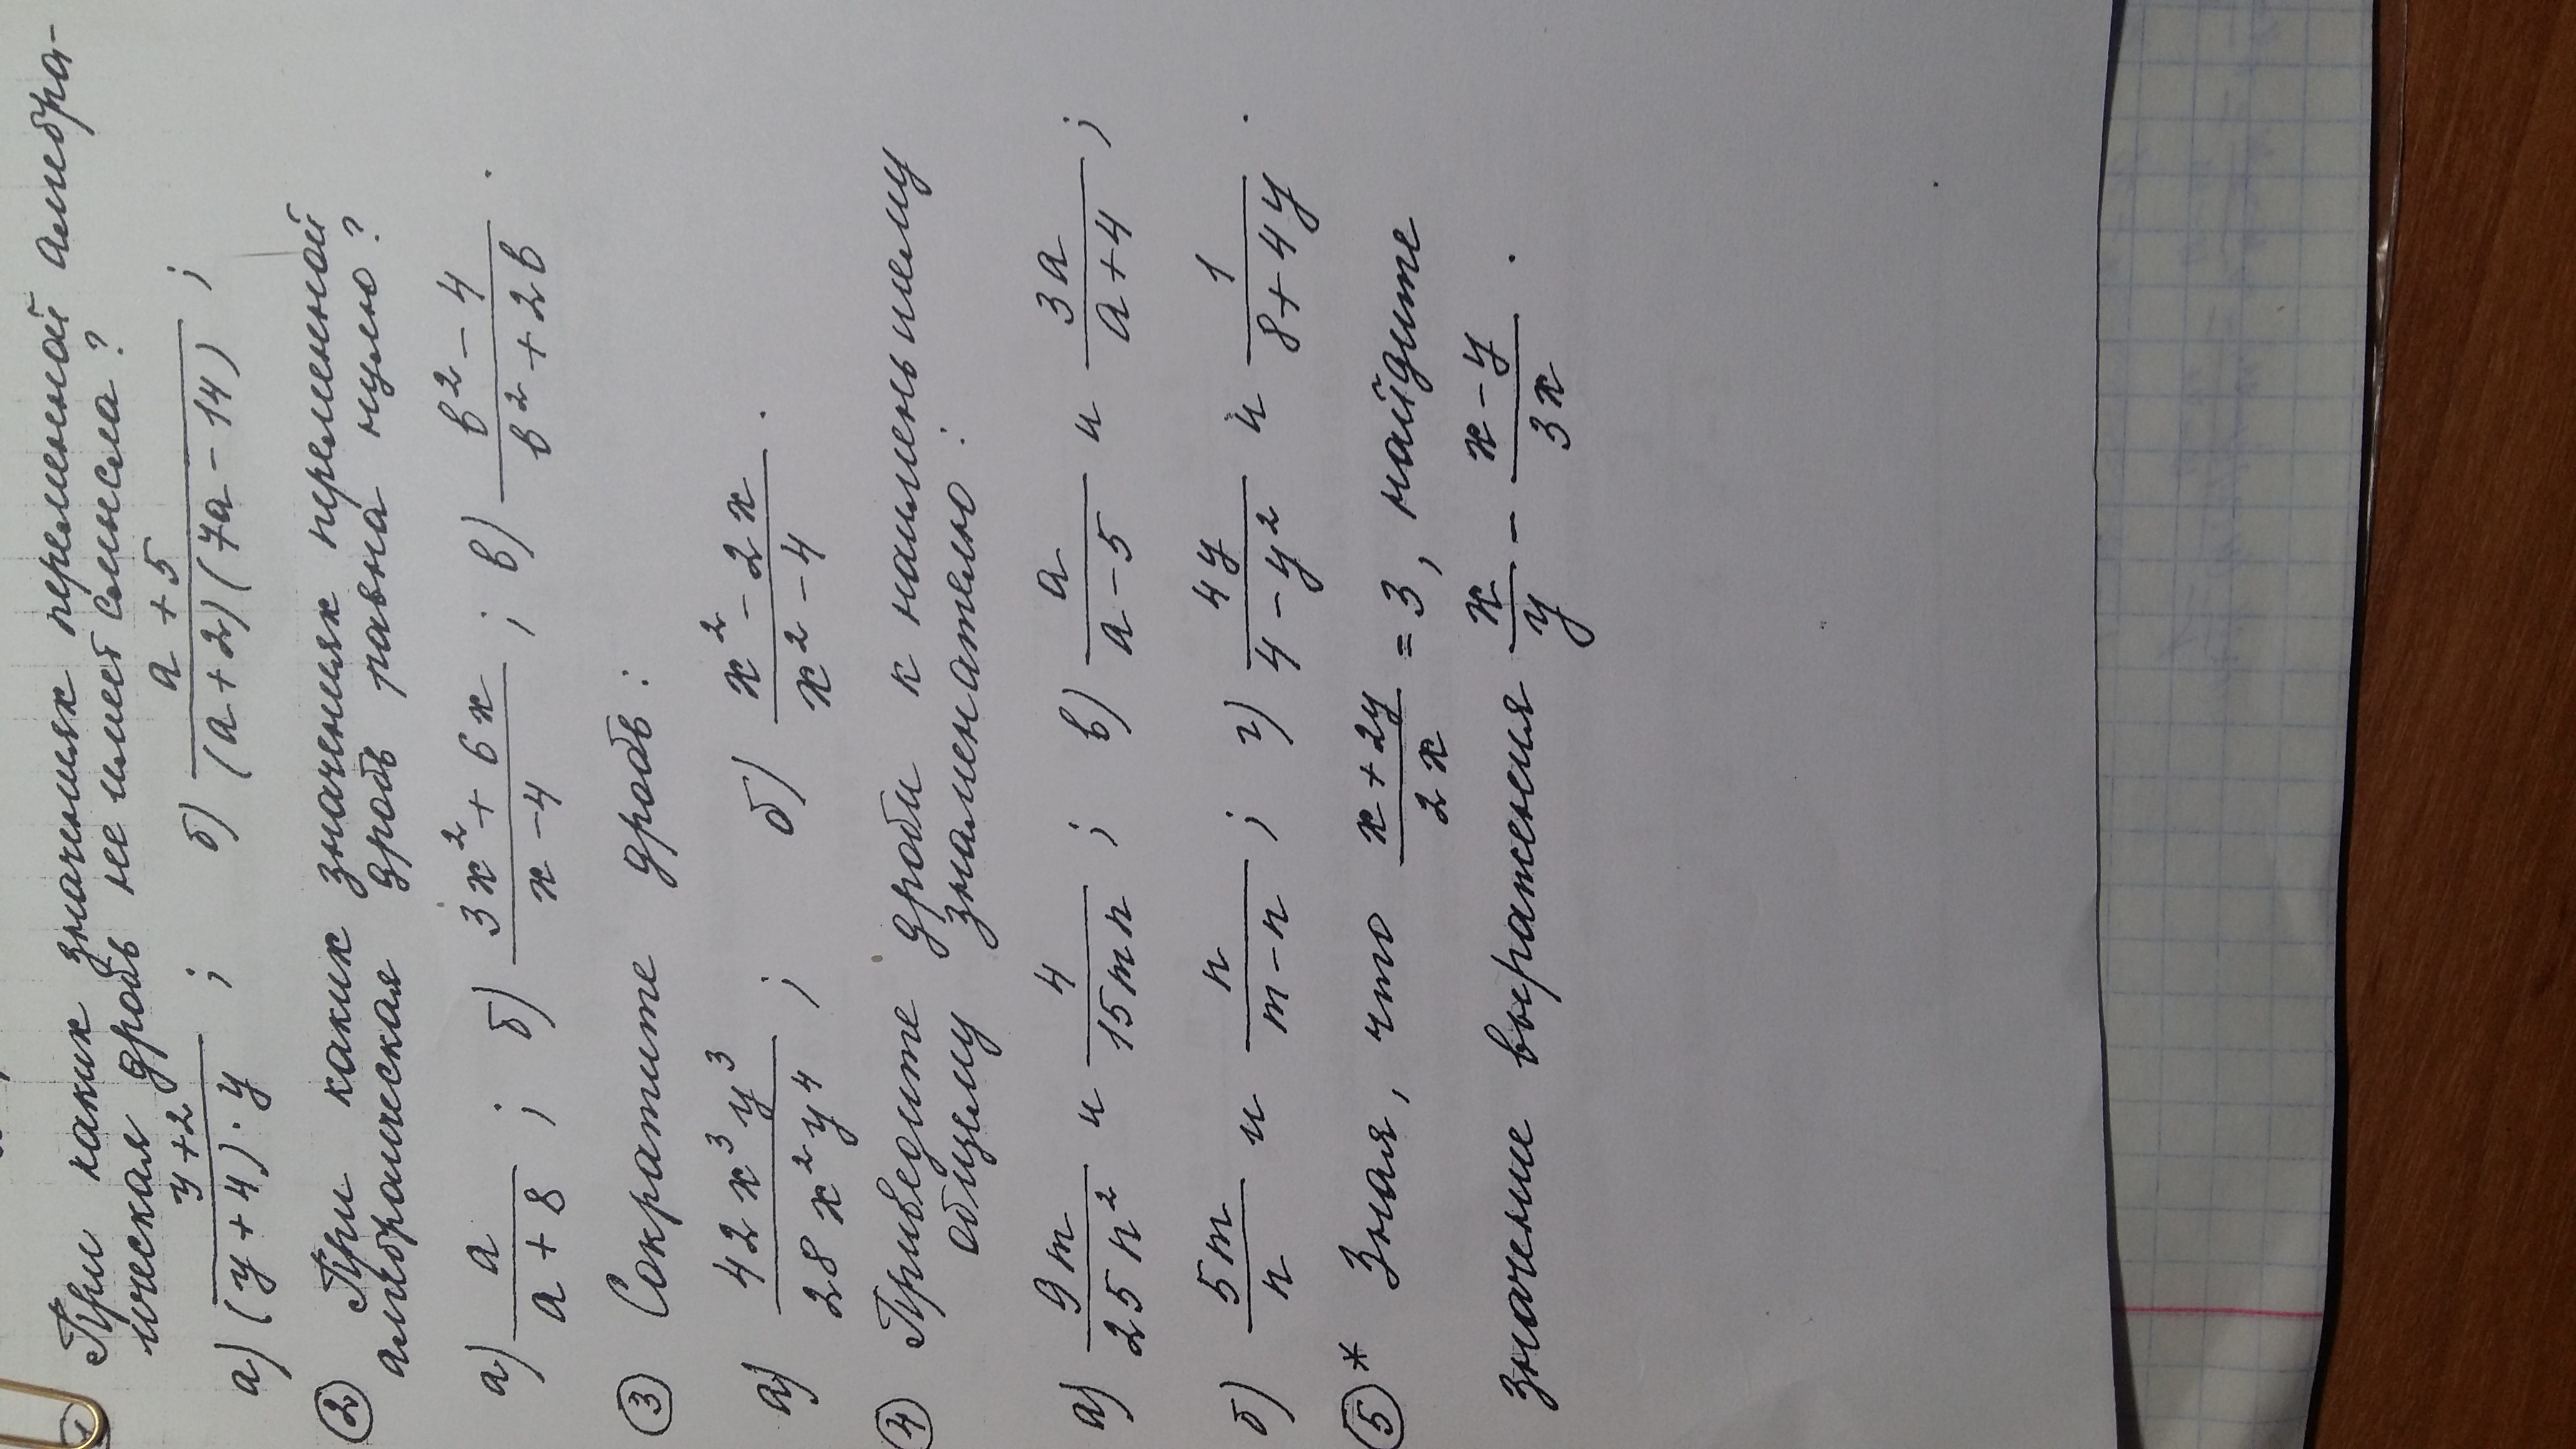 1 При каких значениях переменной алгебра-
ическая дробь не имеет смысла?
а) (y+2)/((y+4)·y) ; б) (a+5)/((a+2)(7a-14)) ;
2 При каких значениях переменной
алгебраическая дробь равна нулю?
а) a/(a+8) ; б) (3x²+6x)/(x-4) ; в) (b²-4)/(b²+2b) .
3 Сократите дробь:
а) 42x³y³/28x²y⁴ ; б) (x²-2x)/(x²-4) .
4 Приведите дроби к наименьшему
общему знаменателю:
а) 9m/25n² и 4/15mn ; в) a/(a-5) и 3a/(a+4) ;
б) 5m/n и n/(m-n) ; г) 4y/(4-y²) и 1/(8+4y) .
5* Зная, что (x+2y)/2x = 3, найдите
значение выражения x/y - (x-y)/3x .